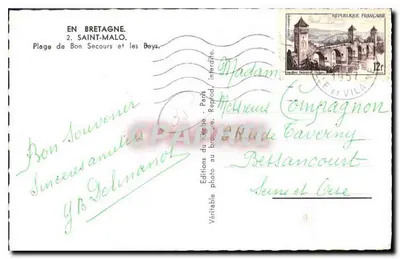 EN BRETAGNE.
2. SAINT-MALO.
Plage de Bon Secours et les Beys.
REPUBLIQUE FRANÇAISE
12f
ET VILAINE
Madame
Monsieur Compagnon
Rue de Taverny
Bessancourt
Seine et Oise
Bon Souvenir
Sincères amitiés
Paris
Véritable photo au bromure. Reprod. interdite.
Editions du